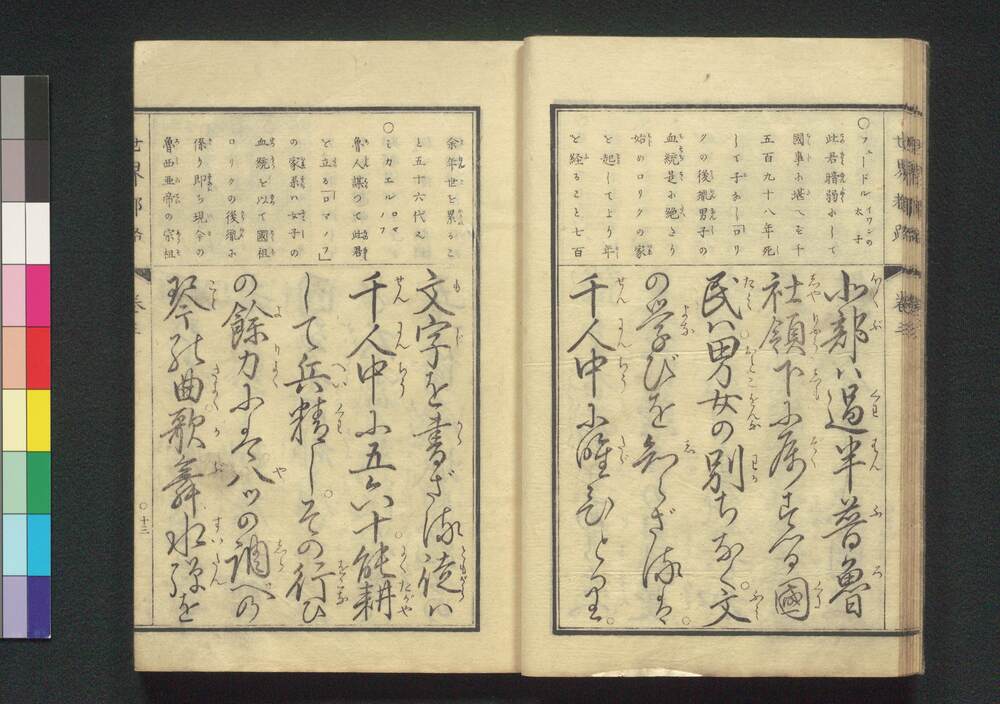 ○フュードル イワンの太子
此君暗弱にして
國事に堪へず千
五百九十八年死
して子なしロリ
クの後胤男子の
血統是に絶たり
始めロリクの家
を起してより年
を経ること七百
小部ハ過半普魯
社領下に属する國
民ハ男女の別ちなく文
の学びを知らざるは
千人中に唯ひとり
世界都路
余年世を累るこ
と五十六代之
○ミカエル ロマノフ
魯人謀つて此君
を立る「ロマノフ」
の家系ハ女子の
血統を以て國祖
ロリクの後胤に
係り即ち現今の
魯西亜帝の宗祖
文字を書ざる徒ハ
千人中に五六十能耕
して兵精しその行ひ
の餘力にハ八ツの調べの
琴の曲歌舞
世界都路
十三